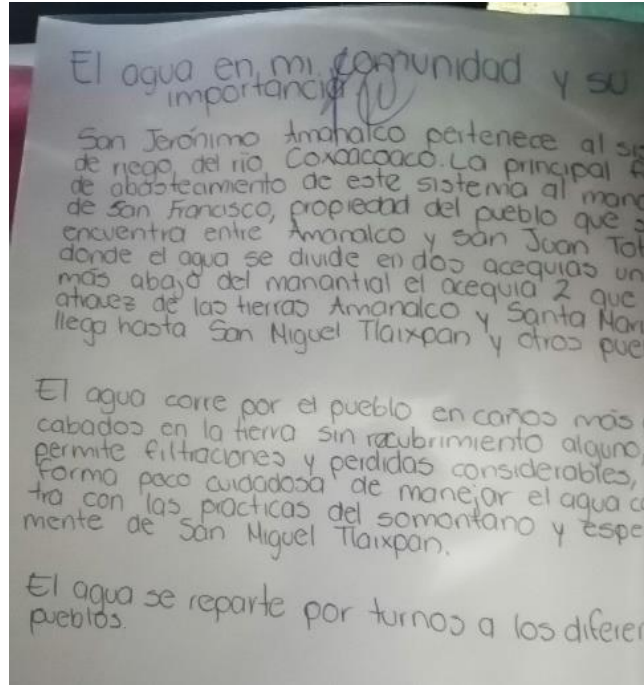 El agua en mi comunidad y su
importancia
San Jerónimo Amanalco pertenece al
de riego del río Coxcacoaco. La principal
de abasteamiento de este sistema al mana
de San Francisco, propiedad del pueblo que s
encuentra entre Amanalco y San Juan Tot
donde el agua se divide en dos acequias un
más abajo del manantial el acequia 2 que
atravez de las tierras Amanalco y Santa Mar
llega hasta San Miguel Tlaixpan y otros pue
El agua corre por el pueblo en caños más
cabados en la tierra sin recubrimiento alguno,
permite filtraciones y perdidas considerables,
forma poco cuidadosa de manejar el agua c
tra con las practicas del somontano y espe
mente de San Miguel Tlaixpan.
El agua se reparte por turnos a los diferen
pueblos.